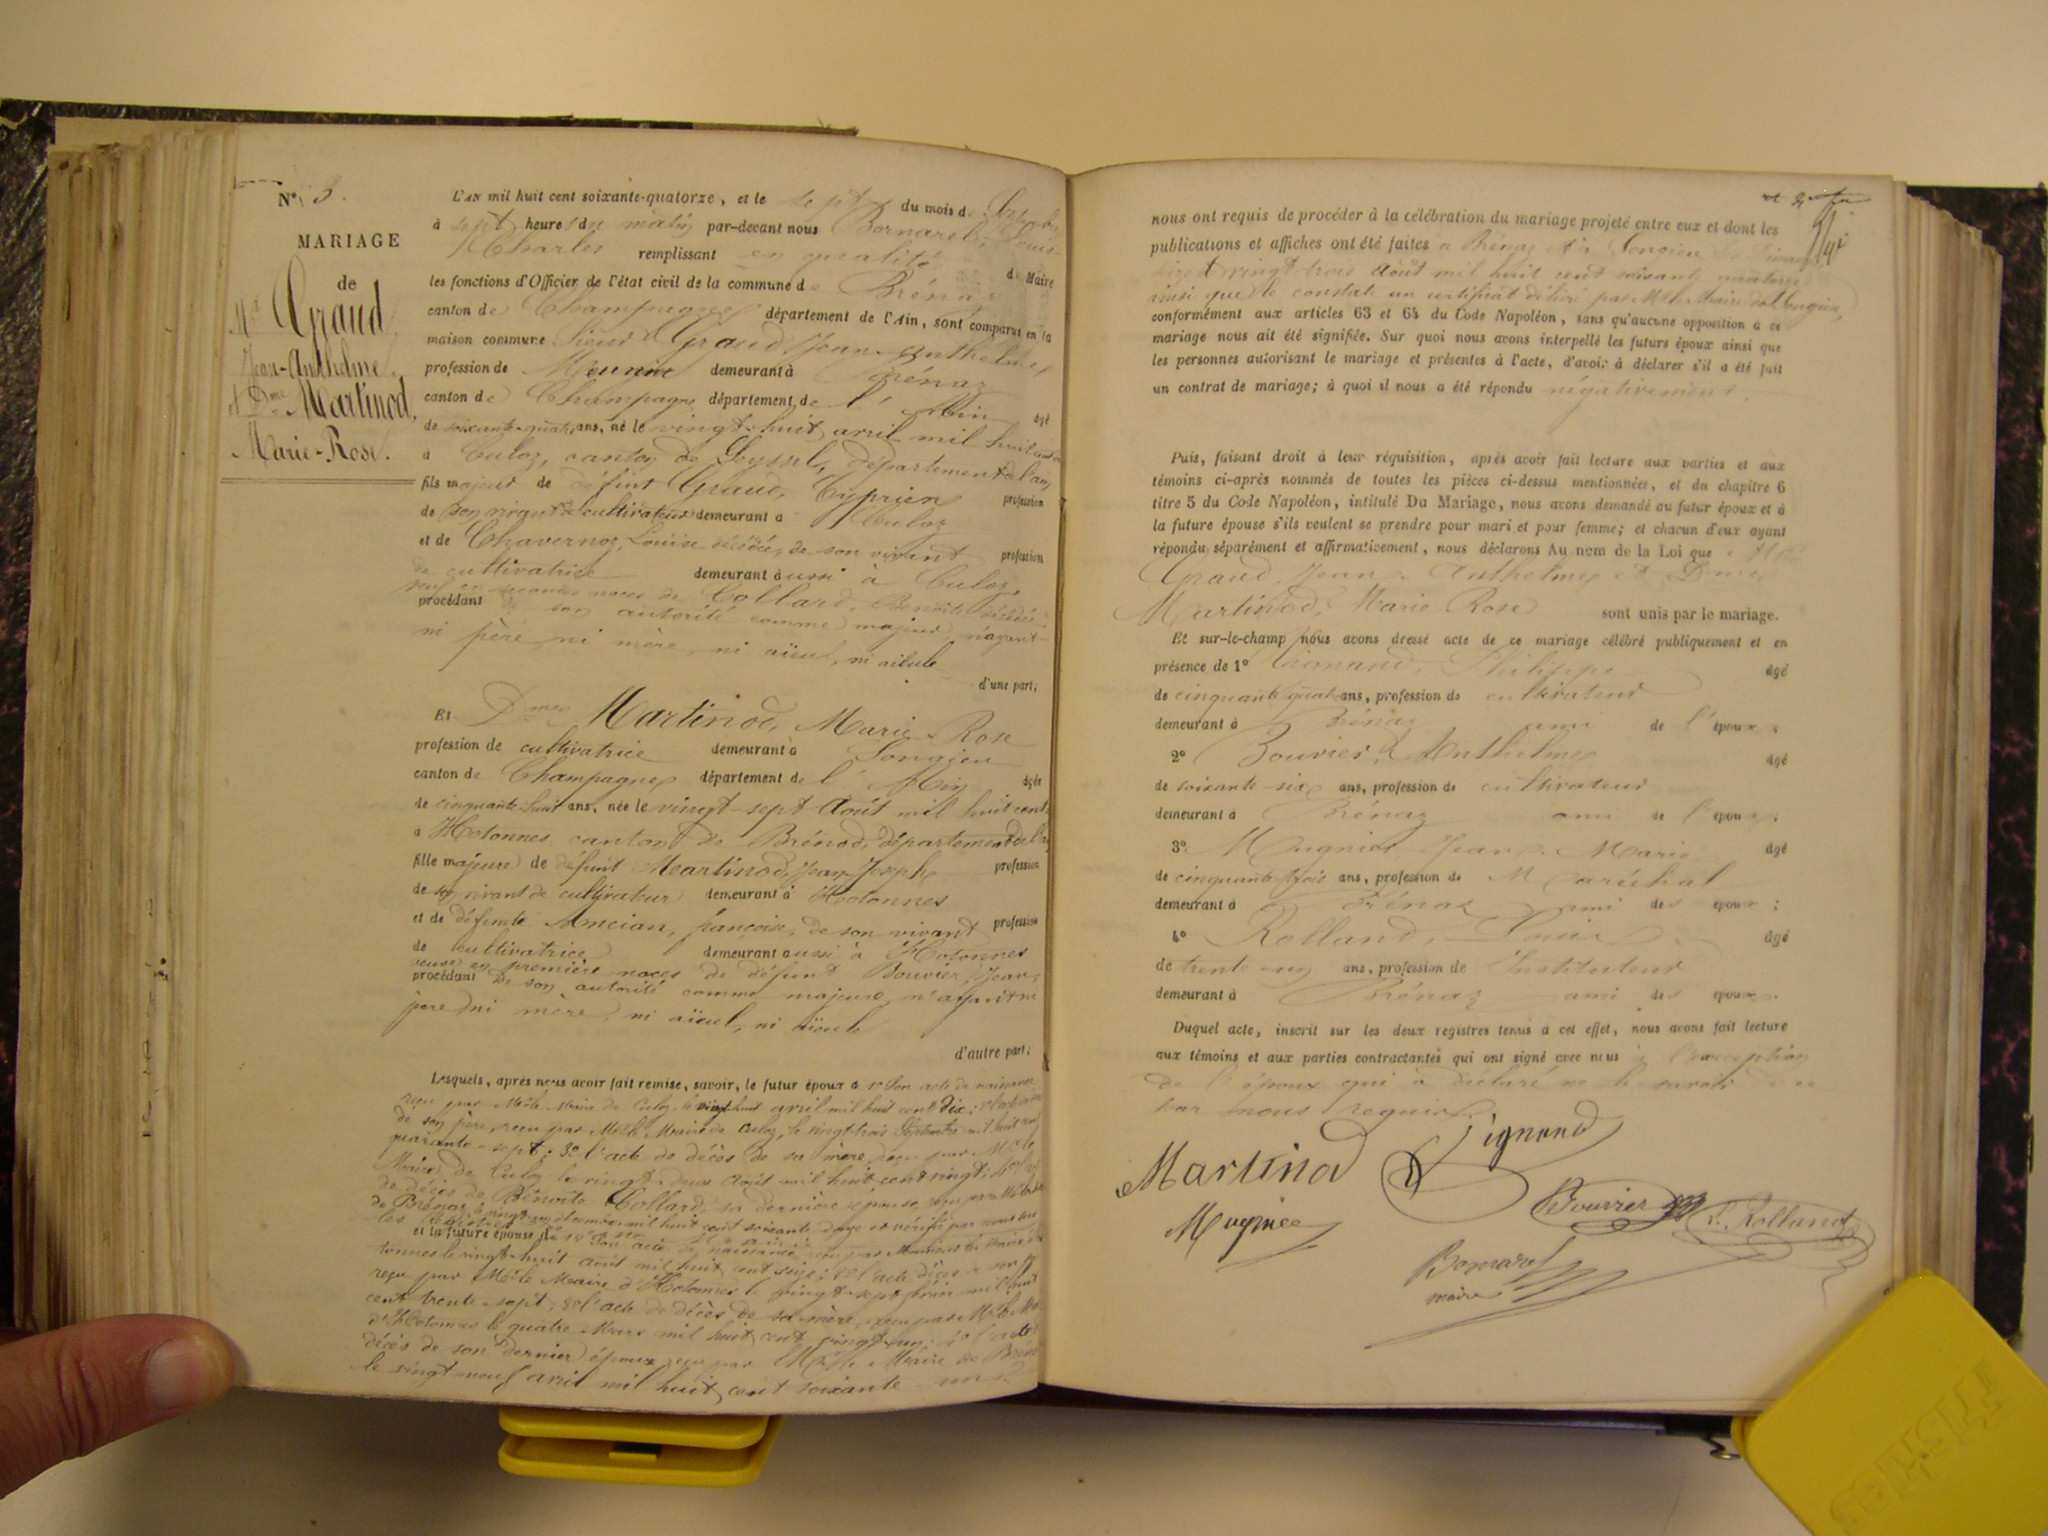 N° 3.
MARIAGE
de
Mr Graud
Jean-Anthelme
et Dme Martinod,
Marie-Rose.
L'AN mil huit cent soixante-quatorze, et le sept du mois de
à sept heures du matin par-devant nous Bornarel, Louis
Charles remplissant en qualité de Maire
les fonctions d'Officier de l'état civil de la commune de Brénaz
canton de Champagne département de l'Ain, sont comparus en la
maison commune Sieur Graud Jean-Anthelme
profession de Meunier demeurant à Brénaz
canton de Champagne département de l'Ain âgé
de soixante-quatre ans, né le vingt-huit avril mil huit cent
à Culoz, canton de Seyssel, département de l'ain
fils majeur de défunt Graud, Cyprien profession
de son vivant de cultivateur demeurant à Culoz
et de Chavernoz, Louise décédée, de son vivant profession
de cultivatrice demeurant aussi à Culoz,
veuf en secondes noces de Collard, Benoîte décédée
procédant de son autorité comme majeur n'ayant
ni père, ni mère, ni aïeul, ni aïeule
d'une part;
Et Dme Martinod, Marie-Rose
profession de cultivatrice demeurant à Songieu
canton de Champagne département de l'Ain âgée
de cinquante-huit ans, née le vingt-sept Août mil huit cent
à Hotonnes canton de Brénod, département de l'ain
fille majeure de défunt Martinod, Jean-Joseph profession
de son vivant de cultivateur demeurant à Hotonnes
et de défunte Ancian, françoise, de son vivant profession
de cultivatrice demeurant aussi à Hotonnes
veuve en premières noces de défunt Bouvier, Jean,
procédant de son autorité comme majeure, n'ayant ni
père, ni mère, ni aïeul, ni aïeule
d'autre part;
Lesquels, après nous avoir fait remise, savoir, le futur époux de 1° Son acte de naissance
reçu par Mr le Maire de Culoz le vingt-huit avril mil huit cent dix;
de son père, reçu par Mr le Maire de Culoz, le vingt-trois Septembre mil huit cent
quarante-sept; 3° l'acte de décès de sa mère reçu par Mr le
Maire de Culoz le vingt-deux Août mil huit cent vingt;
de décès de Bénoîte Collard, sa dernière épouse, reçu par Mr le
de Brénaz, le mil huit cent soixante et vérifié par nous sur
les
et la future épouse de 1° Son acte de naissance reçu par Monsieur le Maire
tonnes le vingt-huit août mil huit cent seize; 2° l'acte décès de son
reçu par Mr le Maire d'Hotonnes le vingt-sept mil huit
cent trente-sept; 3° l'acte de décès de sa mère, reçu par Mr le
d'Hotonnes le quatre Mars mil huit cent vingt-un; 4° l'acte
décès de son dernier époux reçu par Mr le Maire de Brénaz
le vingt-neuf avril mil huit cent soixante
nous ont requis de procéder à la célébration du mariage projeté entre eux et dont les
publications et affiches ont été faites à Brénaz et à Songieu les
seize et vingt-trois Août mil huit cent soixante quatorze
ainsi que le constate un certificat délivré par Mr le Maire de Songieu,
conformément aux articles 63 et 64 du Code Napoléon, sans qu'aucune opposition à ce
mariage nous ait été signifiée. Sur quoi nous avons interpellé les futurs époux ainsi que
les personnes autorisant le mariage et présentes à l'acte, d'avoir à déclarer s'il a été fait
un contrat de mariage; à quoi il nous a été répondu négativement.
Puis, faisant droit à leur réquisition, après avoir fait lecture aux parties et aux
témoins ci-après nommés de toutes les pièces ci-dessus mentionnées, et du chapitre 6
titre 5 du Code Napoléon, intitulé Du Mariage, nous avons demandé au futur époux et à
la future épouse s'ils veulent se prendre pour mari et pour femme; et chacun d'eux ayant
répondu séparément et affirmativement, nous déclarons Au nom de la Loi que
Graud, Jean-Anthelme et Dme
Martinod, Marie Rose sont unis par le mariage.
Et sur-le-champ nous avons dressé acte de ce mariage célébré publiquement et en
présence de 1° Philippe âgé
de cinquante quatre ans, profession de cultivateur
demeurant à Brénaz ami de l'époux;
2° Bouvier, Anthelme âgé
de soixante-six ans, profession de cultivateur
demeurant à Brénaz ami de l'époux;
3° Mugnier Jean-Marie âgé
de cinquante-trois ans, profession de Maréchal
demeurant à Brénaz ami des époux;
4° Rolland, Louis âgé
de trente-un ans, profession de Instituteur
demeurant à Brénaz ami des époux.
Duquel acte, inscrit sur les deux registres tenus à cet effet, nous avons fait lecture
aux témoins et aux parties contractantes qui ont signé avec nous à l'exception
de l'époux qui a déclaré ne le savoir de ce
par nous requis.
Martinod
Mugnier
Bouvier
L. Rolland
Bornarel
maire